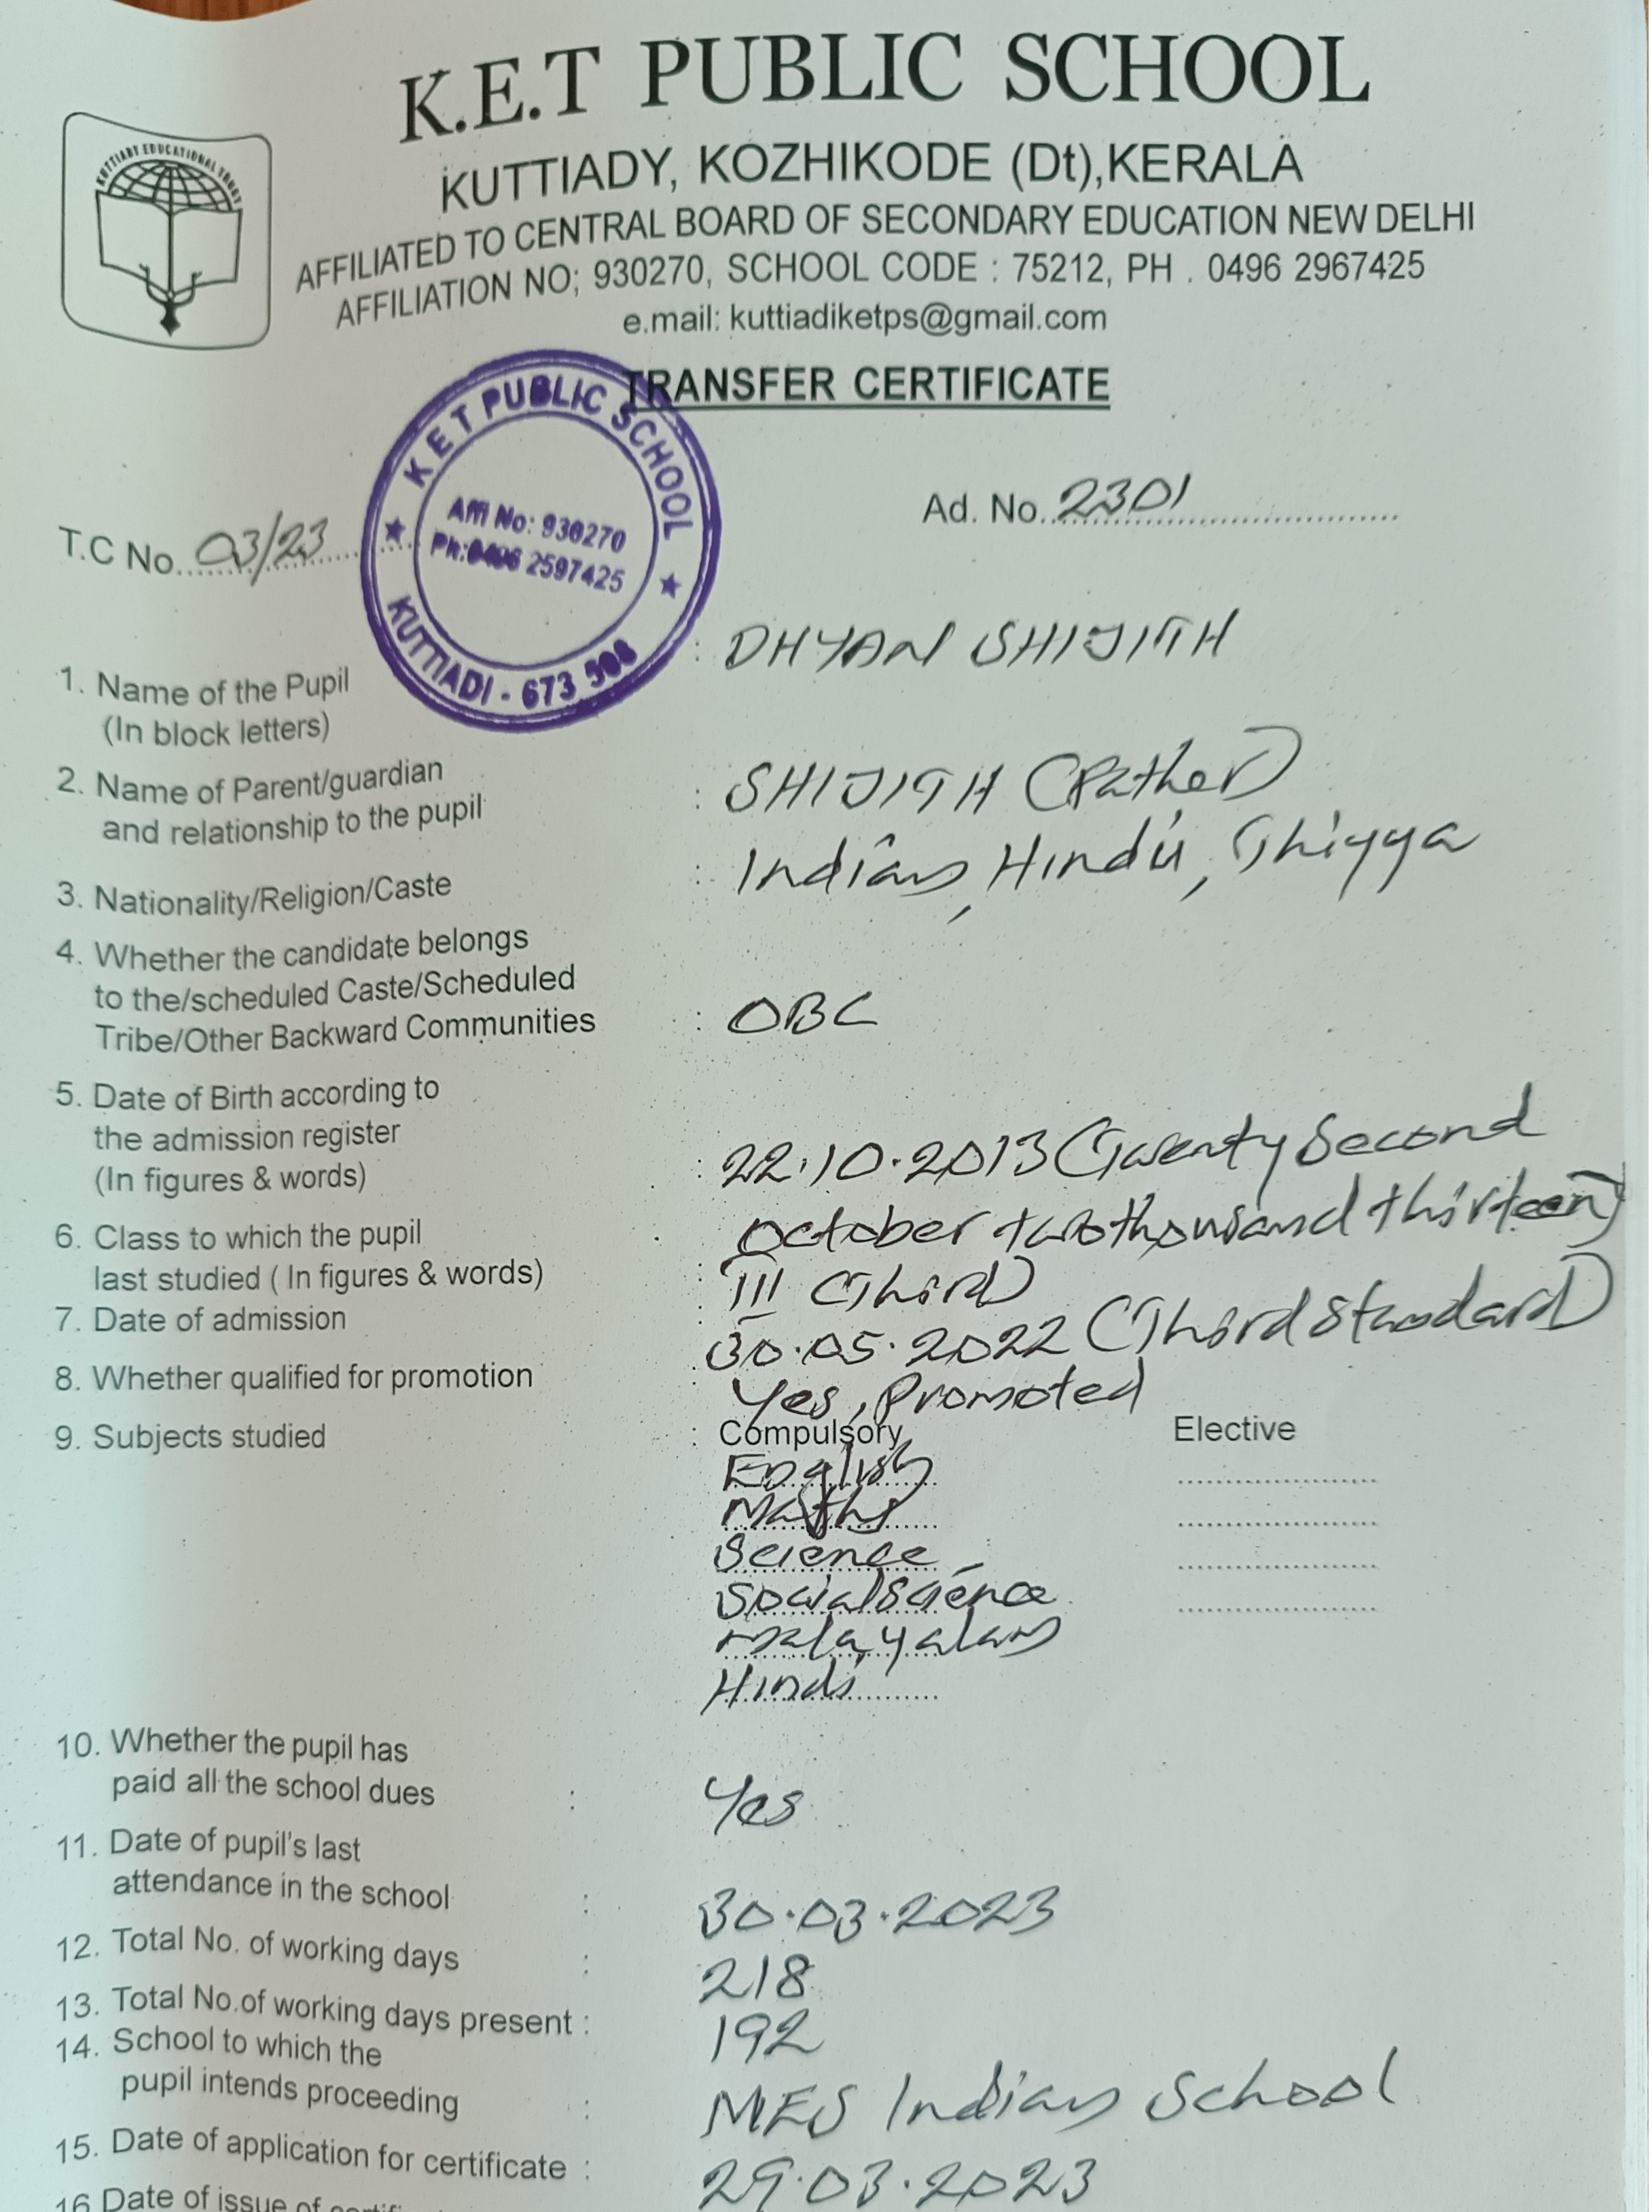 K.E.T PUBLIC SCHOOL
KUTTIADY EDUCATIONAL TRUST
KUTTIADY, KOZHIKODE (Dt),KERALA
AFFILIATED TO CENTRAL BOARD OF SECONDARY EDUCATION NEW DELHI
AFFILIATION NO; 930270, SCHOOL CODE : 75212, PH . 0496 2967425
e.mail: kuttiadiketps@gmail.com
TRANSFER CERTIFICATE
K E T PUBLIC SCHOOL
Affi No: 930270
Ph:0496 2597425
KUTTIADI - 673 508
T.C No. 03/23
Ad. No. 2301
1. Name of the Pupil : DHYAN SHIJITH
(In block letters)
2. Name of Parent/guardian
and relationship to the pupil : SHIJITH (Father)
3. Nationality/Religion/Caste : Indian, Hindu, Thiyya
4. Whether the candidate belongs
to the/scheduled Caste/Scheduled
Tribe/Other Backward Communities : OBC
5. Date of Birth according to
the admission register
(In figures & words) : 22.10.2013 (Twenty Second
October twothousand thirteen)
6. Class to which the pupil
last studied ( In figures & words) : III (Third)
7. Date of admission : 30.05.2022 (Third Standard)
8. Whether qualified for promotion : Yes, Promoted
9. Subjects studied : Compulsory Elective
English
Maths
Science
Social Science
Malayalam
Hindi
10. Whether the pupil has
paid all the school dues : Yes
11. Date of pupil's last
attendance in the school : 30.03.2023
12. Total No. of working days : 218
13. Total No.of working days present : 192
14. School to which the
pupil intends proceeding : MES Indian School
15. Date of application for certificate : 29.03.2023
16 Date of issue of